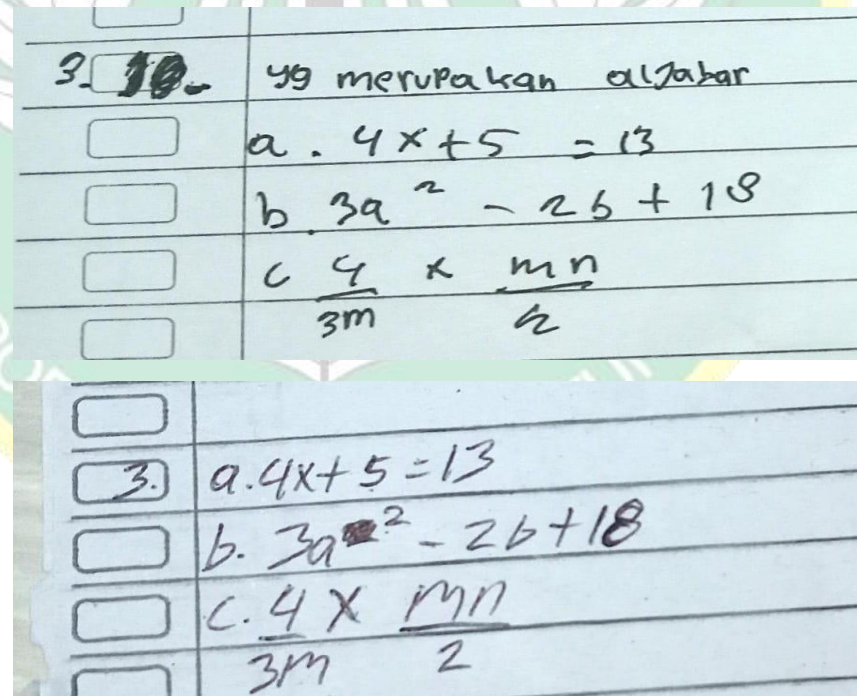 3. yg merupakan aljabar
a. 4x + 5 = 13
b. 3a² - 2b + 18
c 4/3m × mn/2
3. a. 4x + 5 = 13
b. 3a² - 2b + 18
c. 4/3m × mn/2